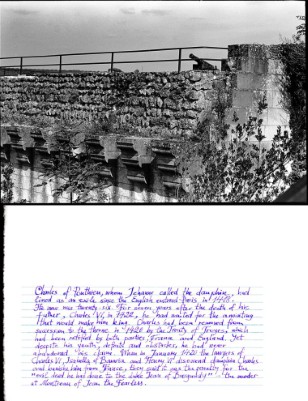 Charles of Ponthieu, whom Jehanne called the dauphine, had
lived as an exile since the English entered Paris in 1418.
He was twenty-six. For seven years after the death of his
father, Charles VI, in 1422, he had waited for the anointing
that would make him king. Charles had been removed from
succession to the throne in 1420 by the Treaty of Troyes, which
had been ratified by both parties, France and England. Yet
despite his youth, defeat and obstacles, he had never
abandoned his claim. When in January 1420 the lawyers of
Charles VI, Isabella of Bavaria and Henry V disowned dauphine Charles
and banished him from France, they said it was the penalty for the
"evil deed he had done to the Duke Jean of Burgundy" - the murder
at Montereau of Jean the Fearless.